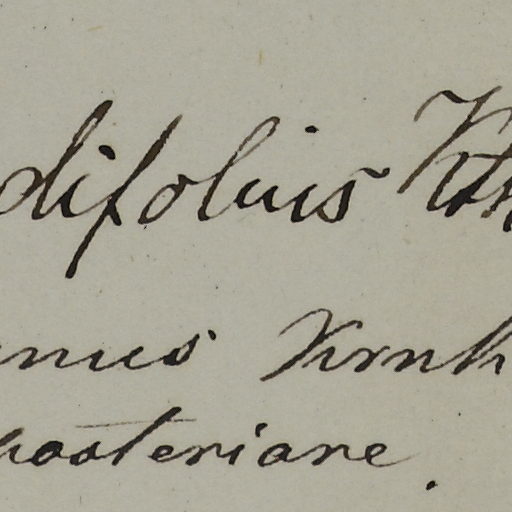 difolius Kth
nus Krnh
posteriore.